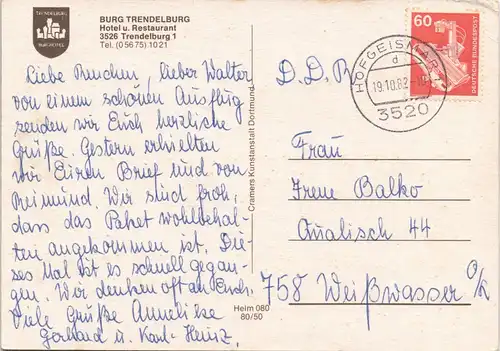 BURG TRENDELBURG
Hotel u. Restaurant
3526 Trendelburg 1
Tel. (05675) 1021
TRENDELBURG
BURGHOTEL
Liebe Renchen, lieber Walter
von einem schönen Ausflug
senden wir Euch herzliche
Grüße. Gestern erhielten
wir Euren Brief und von
Reimund. Wir sind froh,
dass das Paket wohlbehal-
ten angekommen ist. Die-
ses Mal ist es schnell gegan-
gen. Wir denken oft an Euch.
Viele Grüße Annelike
Gerhard u. Karl-Heinz.
Cramers Kunstanstalt Dortmund
Helm 080
80/50
60
DEUTSCHE BUNDESPOST
HOFGEISMAR
d
19.10.82
3520
D.D.R.
Frau
Irene Balko
Qualisch 44
758 Weißwasser O/L